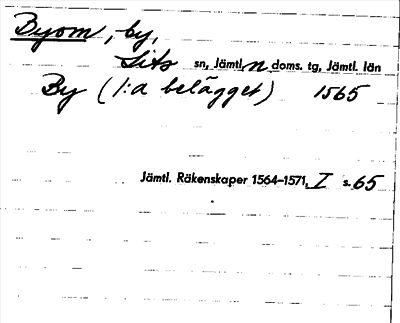 Byom, by,
Lits sn, Jämtl. n doms. tg, Jämtl. län
By (1:a belägget) 1565
Jämtl. Räkenskaper 1564–1571, I s. 65